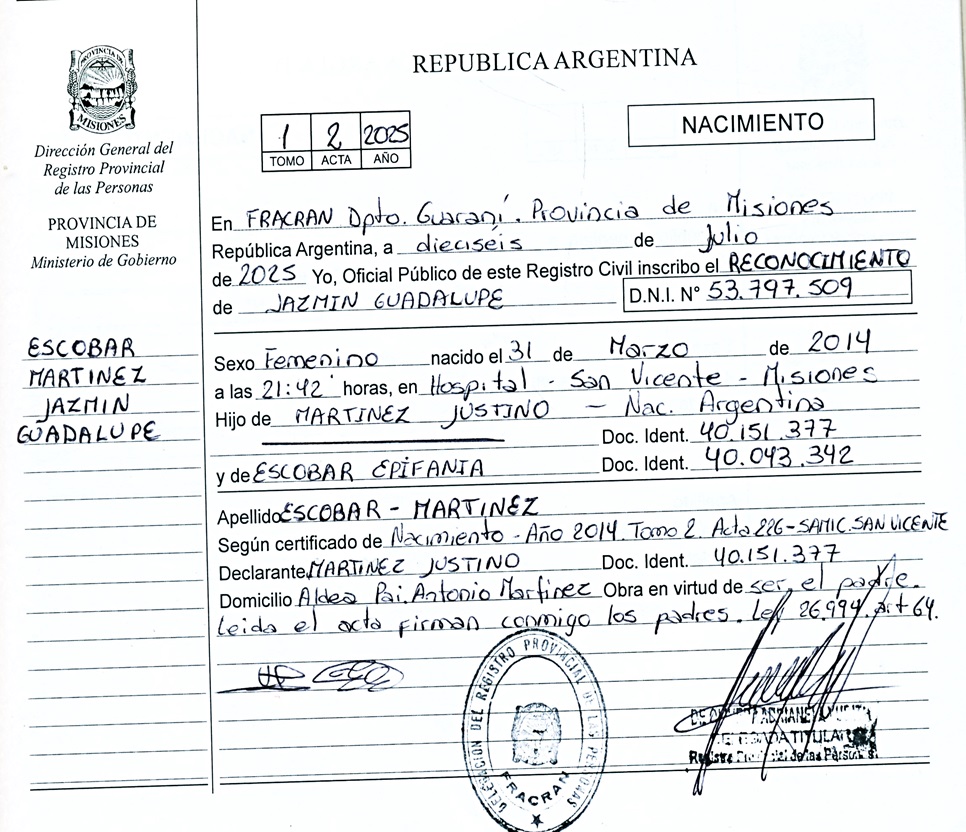 PROVINCIA DE
MISIONES
Dirección General del
Registro Provincial
de las Personas
PROVINCIA DE
MISIONES
Ministerio de Gobierno
ESCOBAR
MARTINEZ
JAZMIN
GUADALUPE
REPUBLICA ARGENTINA
1 2 2025
TOMO ACTA AÑO
NACIMIENTO
En FRACRAN Dpto. Guaraní. Provincia de Misiones
República Argentina, a dieciséis de Julio
de 2025 Yo, Oficial Público de este Registro Civil inscribo el RECONOCIMIENTO
de JAZMIN GUADALUPE D.N.I. N° 53.797.509
Sexo Femenino nacido el 31 de Marzo de 2014
a las 21:42 horas, en Hospital - San Vicente - Misiones
Hijo de MARTINEZ JUSTINO - Nac. Argentina
Doc. Ident. 40.151.377
y de ESCOBAR EPIFANIA Doc. Ident. 40.043.342
Apellido ESCOBAR - MARTINEZ
Según certificado de Nacimiento - Año 2014. Tomo 2. Acta 226 - SAMIC. SAN VICENTE
Declarante MARTINEZ JUSTINO Doc. Ident. 40.151.377
Domicilio Aldea Pai. Antonio Martinez Obra en virtud de ser el padre.
Leida el acta firman conmigo los padres. Ley 26.994 art 64.
DELEGACION DEL REGISTRO PROVINCIAL DE LAS PERSONAS
FRACRAN
TITULAR
Registro Provincial de las Personas